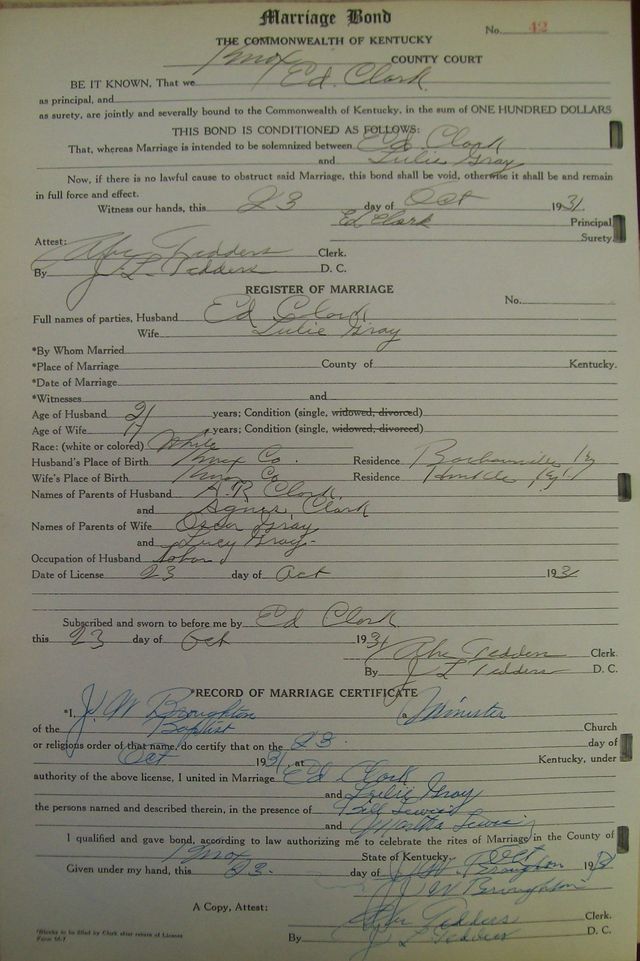 Marriage Bond
No. 42
THE COMMONWEALTH OF KENTUCKY
Knox COUNTY COURT
BE IT KNOWN, That we Ed. Clark
as principal, and
as surety, are jointly and severally bound to the Commonwealth of Kentucky, in the sum of ONE HUNDRED DOLLARS
THIS BOND IS CONDITIONED AS FOLLOWS:
That, whereas Marriage is intended to be solemnized between Ed Clark
and Lulie Gray
Now, if there is no lawful cause to obstruct said Marriage, this bond shall be void, otherwise it shall be and remain
in full force and effect.
Witness our hands, this 23 day of Oct 1931
Ed Clark Principal
Surety.
Attest:
Abe Tedders Clerk.
By J. L. Tedders D. C.
REGISTER OF MARRIAGE
No.
Full names of parties, Husband Ed Clark
Wife Lulie Gray
*By Whom Married
*Place of Marriage County of Kentucky.
*Date of Marriage
*Witnesses and
Age of Husband 21 years; Condition (single, widowed, divorced)
Age of Wife 17 years; Condition (single, widowed, divorced)
Race: (white or colored) White
Husband's Place of Birth Knox Co. Residence Ky
Wife's Place of Birth Knox Co Residence Hinkle Ky
Names of Parents of Husband A.R. Clark
and Agnes Clark
Names of Parents of Wife Oscar Gray
and Lucy Gray
Occupation of Husband Labor
Date of License 23 day of Oct 1931
Subscribed and sworn to before me by Ed Clark
this 23 day of Oct 1931
Abe Tedders Clerk.
By J L Tedders D. C.
*RECORD OF MARRIAGE CERTIFICATE
*I, J. W. Broughton a Minister
of the Baptist Church
or religious order of that name, do certify that on the 23 day of
Oct 1931, at Kentucky, under
authority of the above license, I united in Marriage Ed Clark
and Lulie Gray
the persons named and described therein, in the presence of Bill Lewis
and Martha Lewis
I qualified and gave bond, according to law authorizing me to celebrate the rites of Marriage in the County of
Knox State of Kentucky.
Given under my hand, this 23 day of Oct 193
J. W. Broughton
J W Broughton
A Copy, Attest:
Abe Tedders Clerk.
By J L Tedders D. C.
*Blanks to be filled by Clerk after return of License
Form M-7